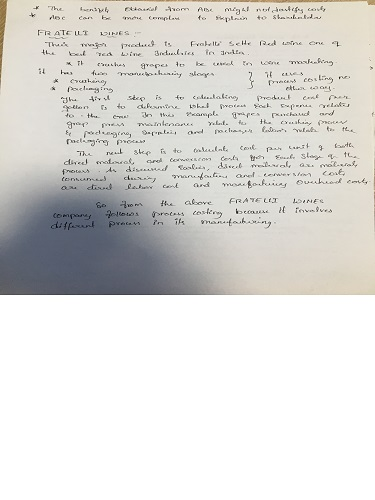 * The benefits obtained from ABC might not justify costs
* ABC can be more complex to explain to shareholders
FRATELLI WINES :-
Their major product is Fratelli Sette Red wine one of
the best red wine Industries in India.
* it crushes grapes to be used in wine marketing
it has two manufacturing stages
* crushing
* packaging
} it uses
process costing no
other way.
The first step is to calculating product cost per
gallon is to determine what process each expense relates
to the one. In this example grapes purchased and
grap press maintenance relate to the crushing process
& packaging supplies and packages labor relate to the
packaging process
The next step is to calculate cost per unit of both
direct material and conversion costs for each stage of the
process. As discussed earlier, direct materials are materials
consumed during manufacture and conversion costs
are direct labor cost and manufacturing overhead costs
So from the above FRATELLI WINES
company follows process costing because it involves
different process in its manufacturing.